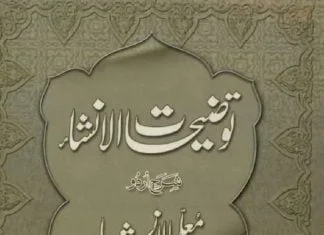 توضیحات الانشاء
شرح اردو
معلم الانشاء